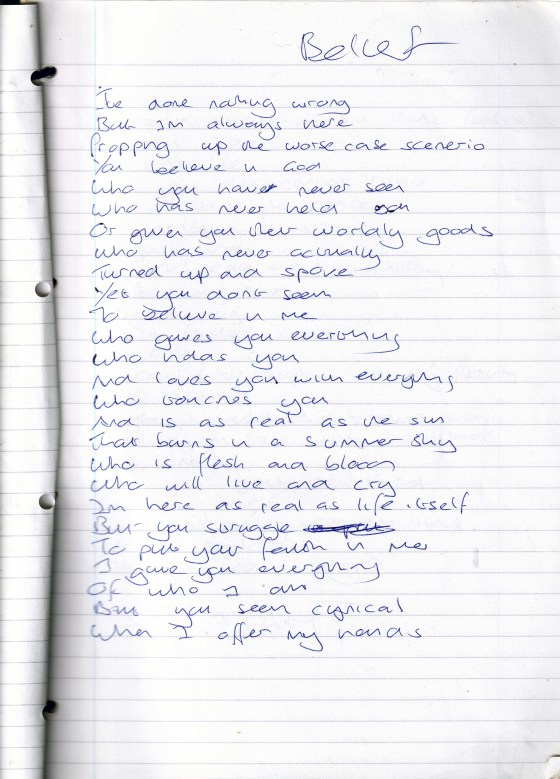 Belief
I've done nothing wrong
But Im always here
Propping up the worse case scenerio
You believe in God
Who you have never seen
Who has never held you
Or given you their worldly goods
Who has never actually
Turned up and spoke
Yet you dont seem
To believe in me
Who gives you everything
Who holds you
And loves you with everything
Who touches you
And is as real as the sun
That burns in a summer sky
Who is flesh and blood
Who will live and cry
Im here as real as life itself
But you struggle
To put your faith in me
I gave you everything
Of who I am
But you seem cynical
When I offer my hands